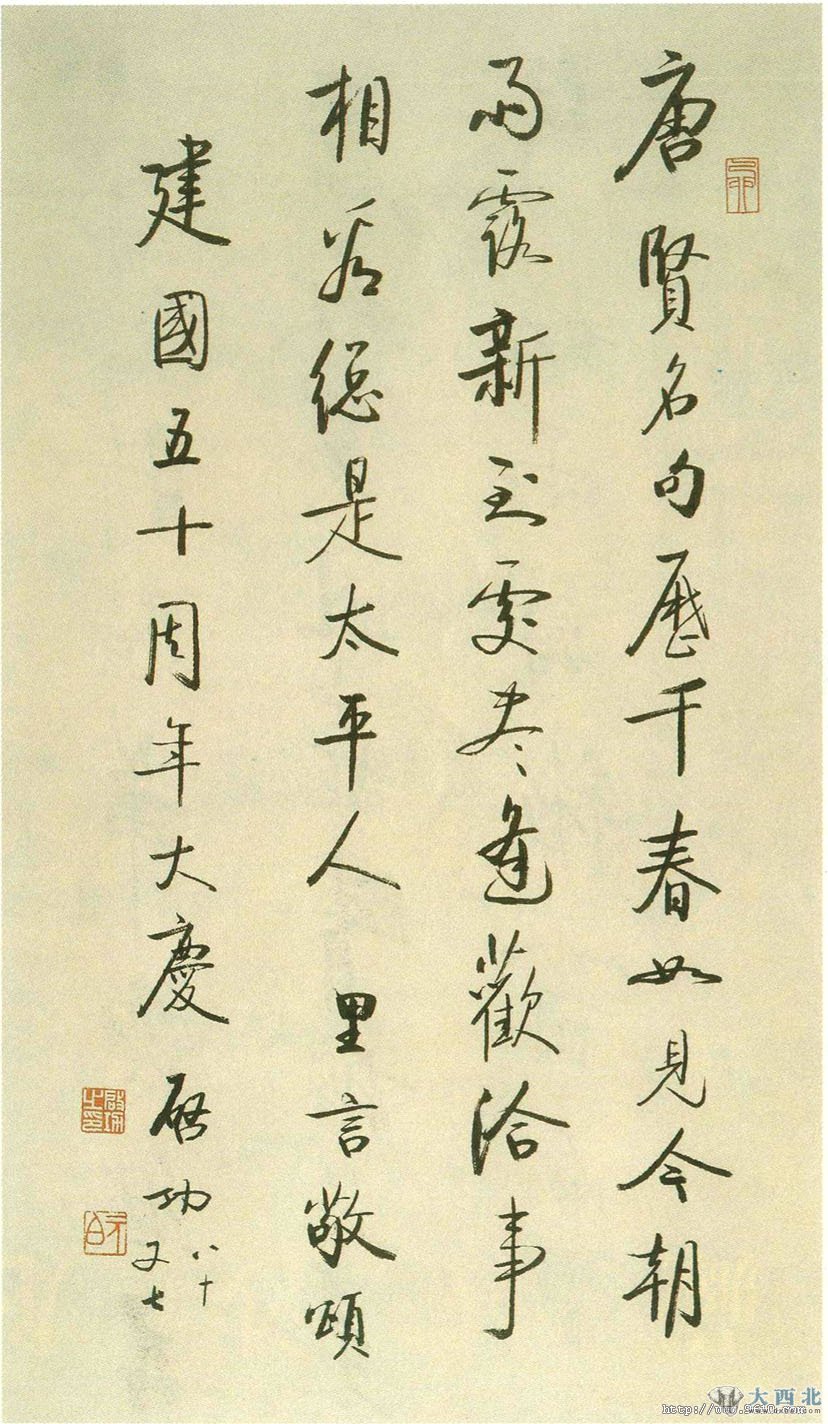 唐賢名句歷千春如見今朝
雨露新到處盡逢歡洽事
相看總是太平人里言敬頌
建國五十周年大慶 啟功
八十
又七
啟功之印
大西北